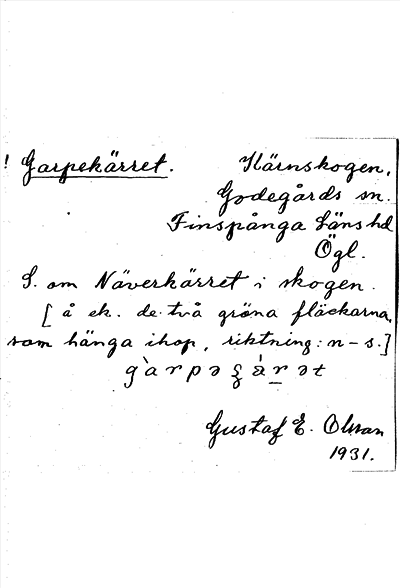 ! Garpekärret. Kärnskogen,
Godegårds sn.
Finspånga Läns hd
Ögl.
S. om Näverkärret i skogen.
[å ek. de två gröna fläckarna,
som hänga ihop, riktning: n-s.]
Gustaf E. Olsson
1931.